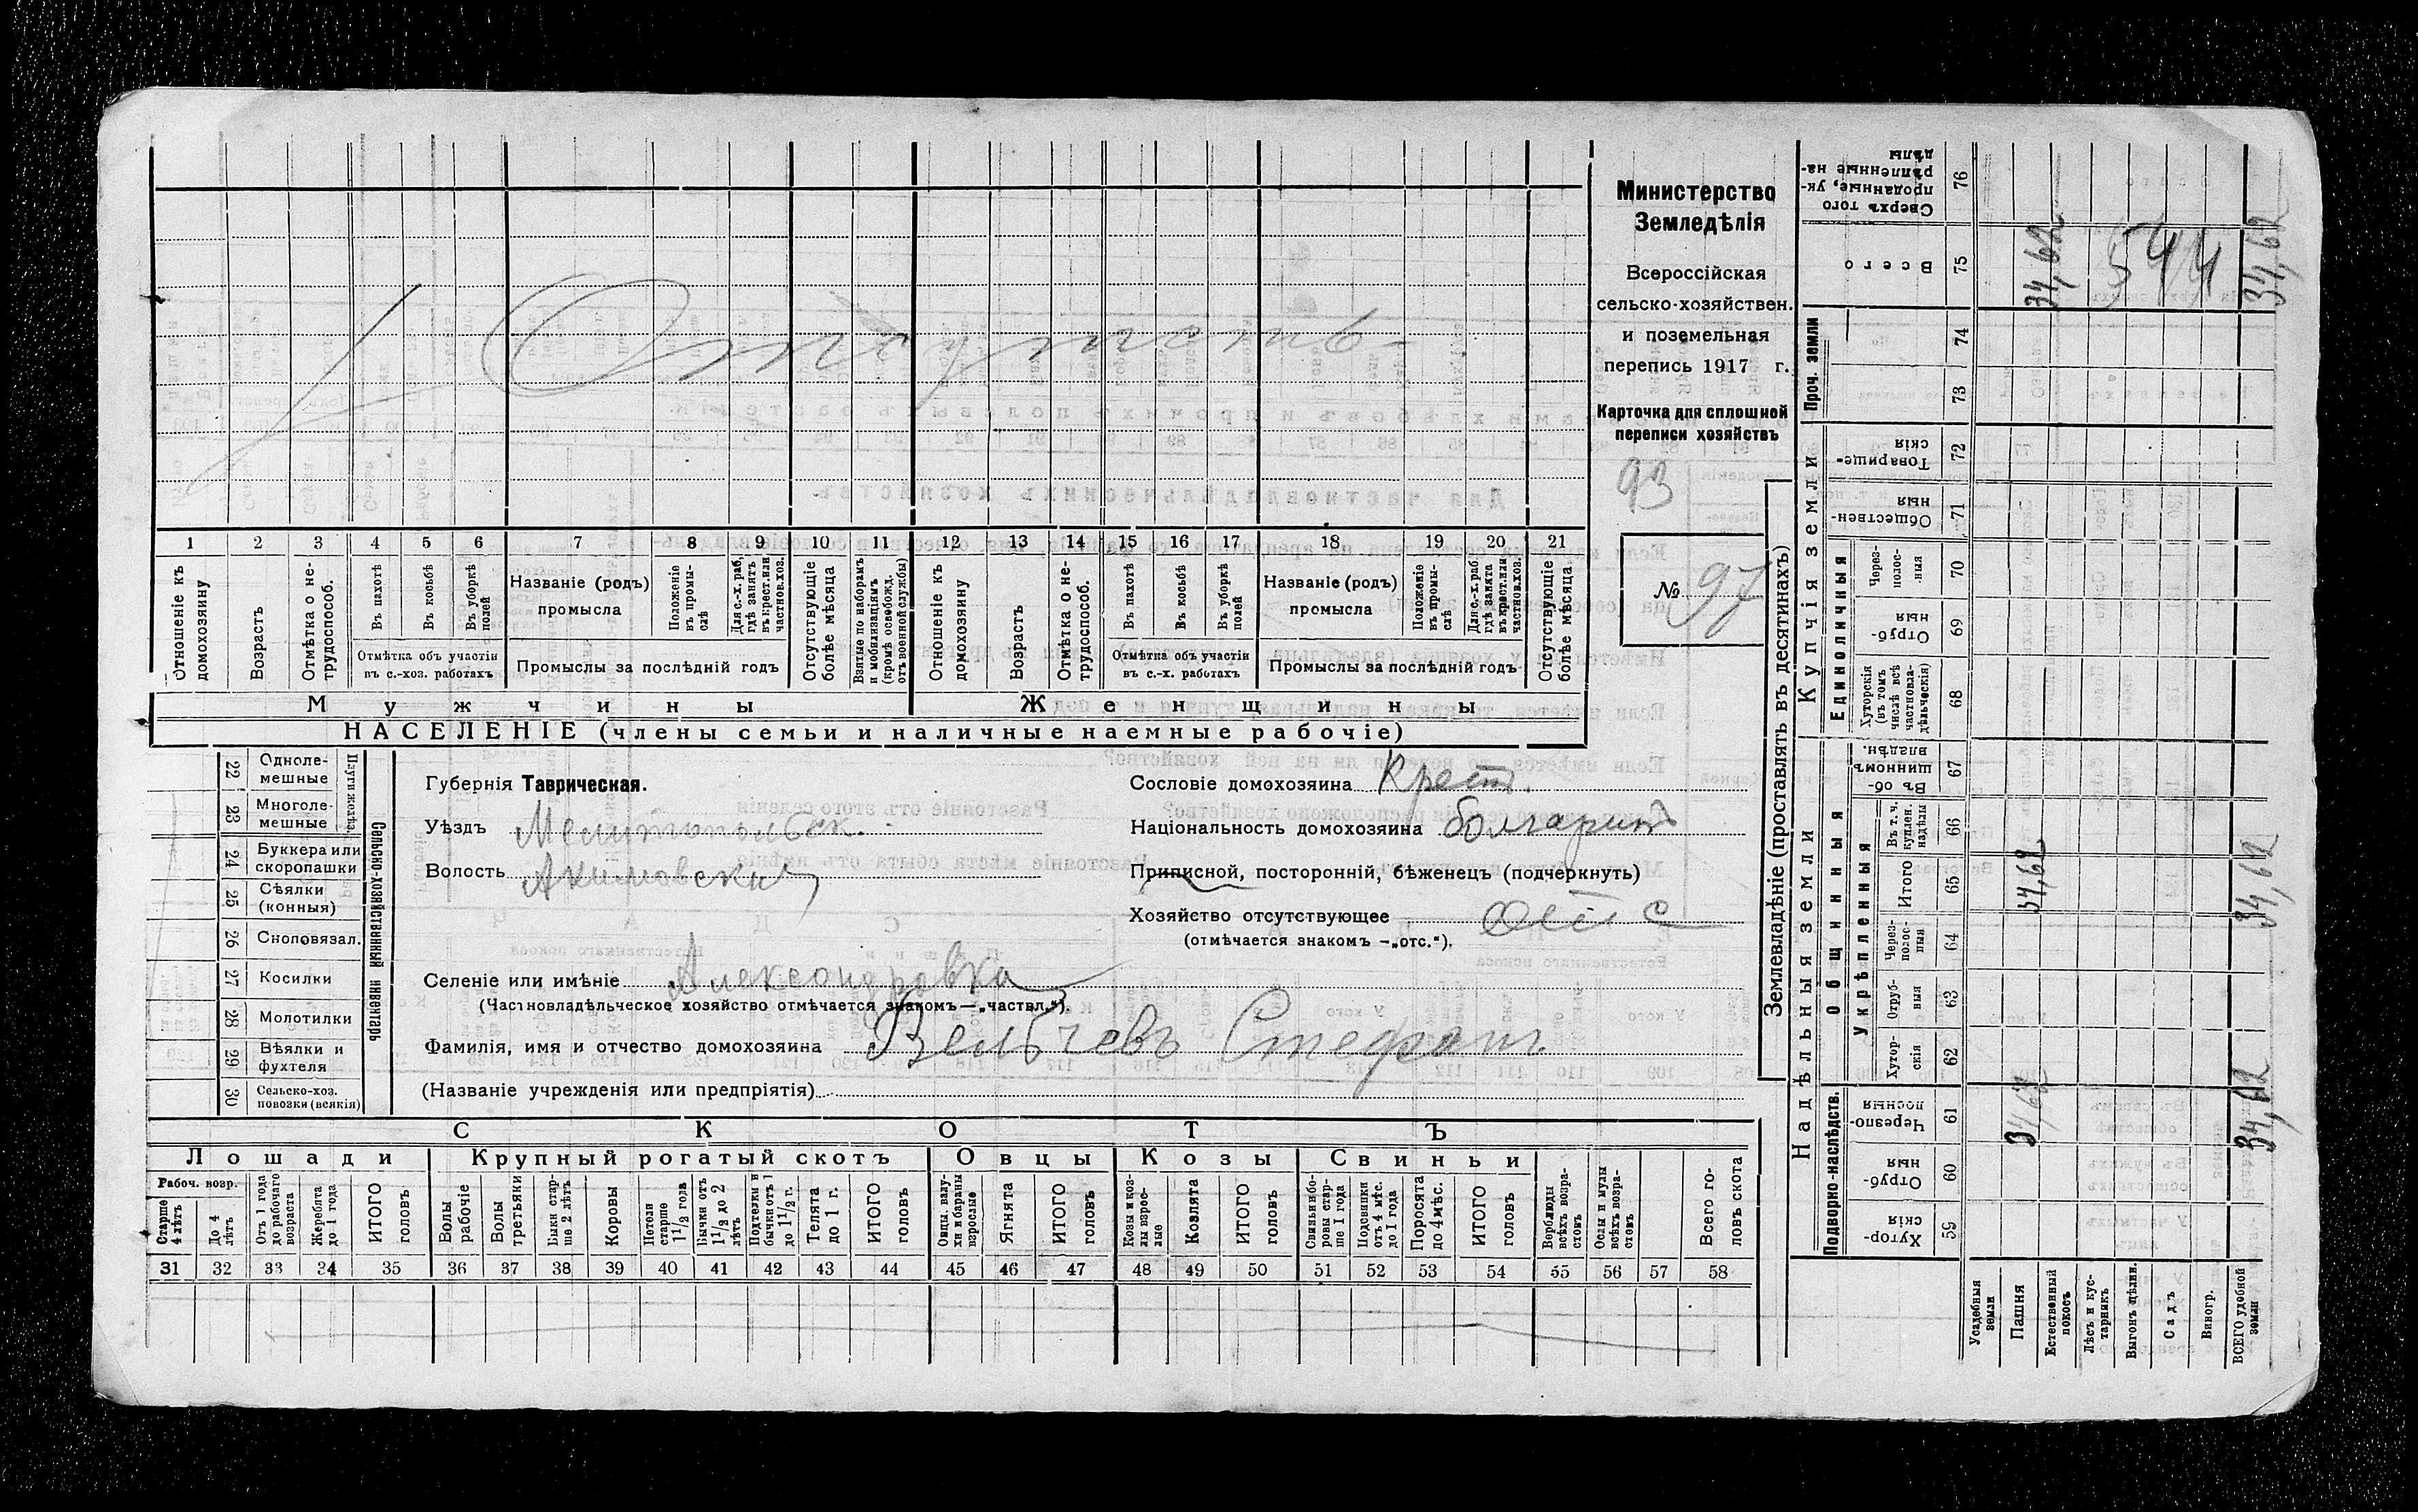 Министерство
Земледѣлія
Всероссійская
сельско-хозяйствен.
и поземельная
перепись 1917 г.
Карточка для сплошной
переписи хозяйствъ
93
№ 97
1 2 3 4 5 6 7 8 9 10 11 12 13 14 15 16 17 18 19 20 21
Отношеніе къ домохозяину
Возрастъ
Отмѣтка о не-трудоспособ.
Въ пахотѣ
Въ косьбѣ
Въ уборкѣ полей
Отмѣтка объ участіи въ с.-хоз. работахъ
Названіе (родъ) промысла
Положеніе въ промы-слѣ
Для с.-х. раб. гдѣ занятъ въ крест. или частнов. хоз.
Промыслы за послѣдній годъ
Отсутствующіе болѣе мѣсяца
Взятые по наборамъ и мобилизаціямъ (кромѣ освобожд. отъ военной службы)
Отношеніе къ домохозяину
Возрастъ
Отмѣтка о не-трудоспособ.
Въ пахотѣ
Въ косьбѣ
Въ уборкѣ полей
Отмѣтка объ участіи въ с.-х. работахъ
Названіе (родъ) промысла
Положеніе въ промы-слѣ
Для с.-х. раб. гдѣ занята въ крест. или частнов. хоз.
Промыслы за послѣдній годъ
Отсутствующіе болѣе мѣсяца
Мужчины
Женщины
НАСЕЛЕНІЕ (члены семьи и наличные наемные рабочіе)
22 Одноле-мешные
23 Многоле-мешные
Плуги желѣз.
24 Буккера или скоропашки
25 Сѣялки (конныя)
26 Сноповязал.
27 Косилки
28 Молотилки
29 Вѣялки и фухтеля
30 Сельско-хоз. повозки (всякія)
Сельско-хозяйственный инвентарь
Губернія Таврическая.
Уѣздъ Мелитопольск.
Волость Акимовская
Сословіе домохозяина Крест.
Національность домохозяина болгаринъ
Приписной, посторонній, бѣженецъ (подчеркнуть)
Хозяйство отсутствующее отс
(отмѣчается знакомъ —„отс.“).
Селеніе или имѣніе Александровка
(Частновладѣльческое хозяйство отмѣчается знакомъ — „частвл.“).
Фамилія, имя и отчество домохозяина Вельчевъ Стефанъ
(Названіе учрежденія или предпріятія)
СКОТЪ
Лошади
Крупный рогатый скотъ
Овцы
Козы
Свиньи
Рабоч. возр.
Старше 4 лѣтъ
До 4 лѣтъ
Отъ 1 года до рабочаго возраста
Жеребята до 1 года
ИТОГО головъ
Волы рабочіе
Волы третьяки
Быки стар-ше 2 лѣтъ
Коровы
Нетели старше 1½ года
Бычки отъ 1½ до 2 лѣтъ
Подтелки и бычки отъ 1 до 1½ г.
Телята до 1 г.
ИТОГО головъ
Овцы, валу-хи и бараны взрослые
Ягнята
ИТОГО головъ
Козы и коз-лы взрос-лые
Козлята
ИТОГО головъ
Свиньи и бо-ровы стар-ше 1 года
Подсвинки отъ 4 мѣс. до 1 года
Поросята до 4 мѣс.
ИТОГО головъ
Верблюды всѣхъ возра-стовъ
Ослы и мулы всѣхъ возра-стовъ
Всего го-ловъ скота
31 32 33 34 35 36 37 38 39 40 41 42 43 44 45 46 47 48 49 50 51 52 53 54 55 56 57 58
Землевладѣніе (проставлять въ десятинахъ)
Купчія земли
Надѣльныя земли
Проч. земли
Единоличныя
Общинныя
Укрѣпленныя
Подворно-наслѣдств.
Сверхъ того проданные, ук-рѣпленные на-дѣлы 76
Всего 75 34,62 544 34,62
74
73
Товарище-скія 72
Обществен-ныя 71
Через-полос-ныя 70
Отруб-ныя 69
Хуторскія (въ томъ числѣ всѣ частновла-дѣльческія) 68
Въ об-щинномъ владѣн. 67
Въ т. ч. куплен. надѣлы 66
Итого 65 34,62 34,62
Через-полос-ныя 64
Отруб-ныя 63
Хутор-скія 62
Черезпо-лосныя 61 34,62 34,62
Отруб-ныя 60
Хутор-скія 59
Усадебныя земли
Пашня
Естественный покосъ
Лѣсъ и кус-тарникъ
Выгонъ цѣлин.
Садъ
Виногр.
ВСЕГО удобной земли